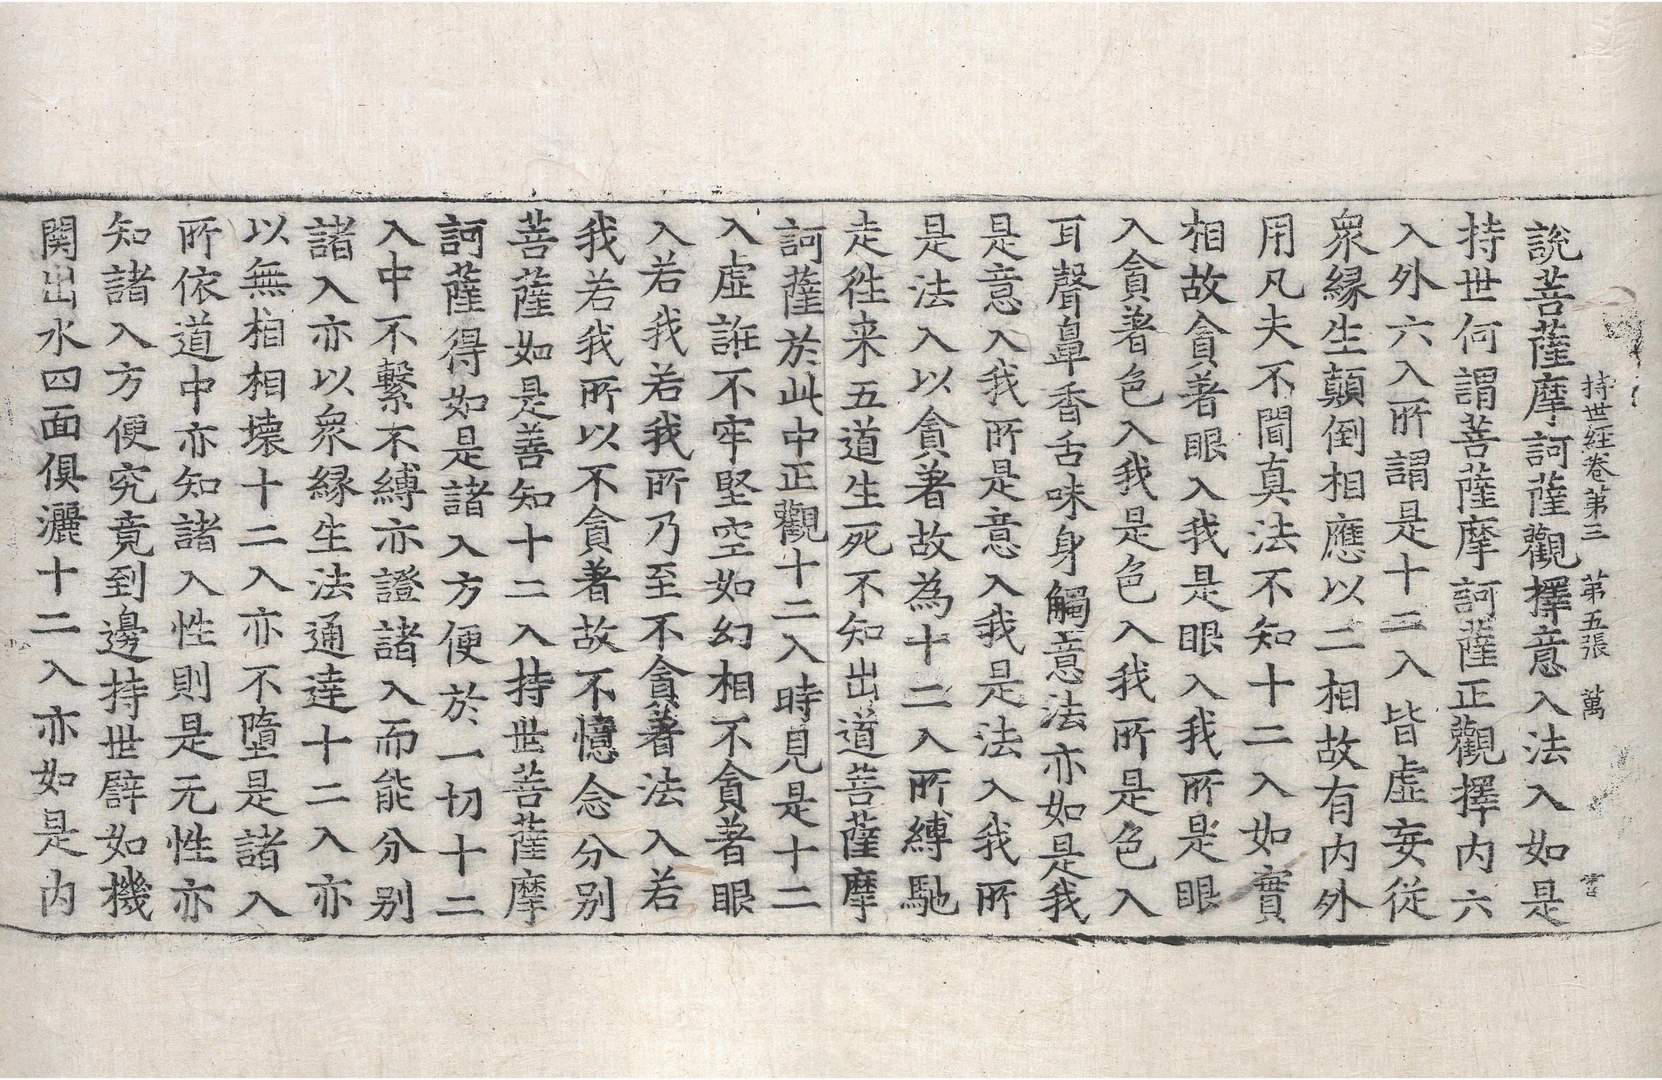 持世經卷第三 第五張 萬
說菩薩摩訶薩觀擇意入法入如是
持世何謂菩薩摩訶薩正觀擇內六
入外六入所謂是十二入皆虛妄從
衆縁生顛倒相應以二相故有内外
用凡夫不聞真法不知十二入如實
相故貪著眼入我是眼入我所是眼
入貪著色入我是色入我所是色入
耳聲鼻香舌味身觸意法亦如是我
是意入我所是意入我是法入我所
是法入以貪著故為十二入所縛馳
走徃来五道生死不知出道菩薩摩
訶薩於此中正觀十二入時見是十二
入虛誑不牢堅空如幻相不貪著眼
入若我若我所乃至不貪著法入若
我若我所以不貪著故不憶念分別
菩薩如是善知十二入持世菩薩摩
訶薩得如是諸入方便於一切十二
入中不繫不縛亦證諸入而能分別
諸入亦以衆縁生法通達十二入亦
以無相相壞十二入亦不墮是諸入
所依道中亦知諸入性則是无性亦
知諸入方便究竟到邊持世譬如機
関出水四面俱灑十二入亦如是内